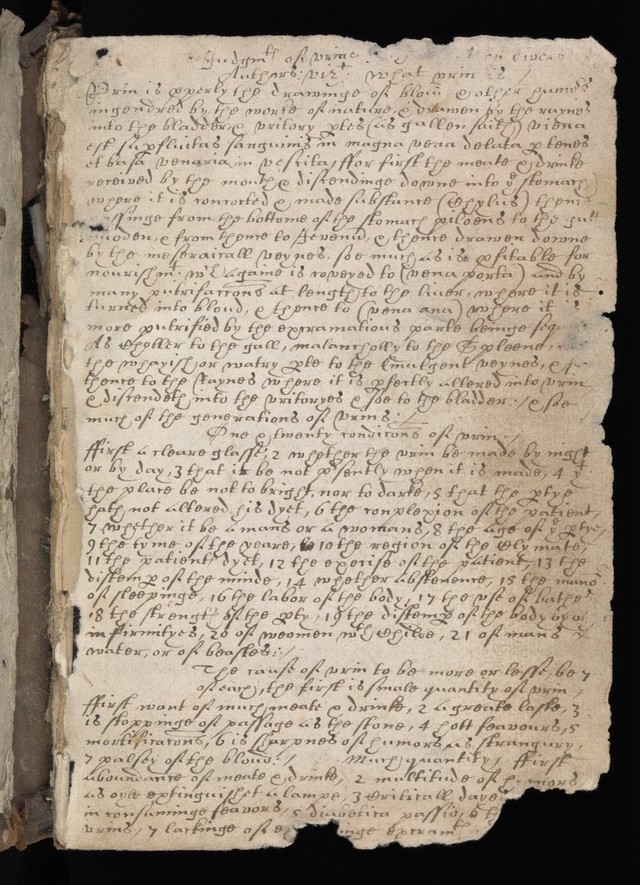 Judgmt of vrine
Authors: vizt: what vrin is /
Vrin is pperly the drawinge of bloud & other humors
ingendred by the worke of nature, & drawen by the raynes
into the bladder & vritory ptes (as gallen saith) vrina
est supfluitas sanguinis in magna vena delata p renes
et basa venaria in vescita, ffor first the meate & drinke
received by the mouth & discendinge downe into ye stomach
where it is concocted & made substance (Chylus) then
passinge from the bottome of the stomach to the gutt
& from thence to & thence drawen downe
by the meseraicall veynes, soe much as is pfitable for
nourishmt, wch againe is coveyed to (vena porta) and by
many putrifaccons at length to the liuer, where it is
turned into bloud, & thence to (vena ) where it
more putrified by the excramatious parte beinge seq
As Choller to the gall, malancholly to the Spleene,
the whayish or watry pte to the Emulgent veynes, &
thence to the Raynes where it is psently altered into vrin
& discendeth into the vritoryes & soe to the bladder: / & soe
much of the generations of vrins: /
One & twenty condicons of vrin /
ffirst a cleare glasse, 2 whether the vrin be made by night
or by day, 3 that it be not psently when it is made, 4 yt
the place be not to bright, nor to darke, 5 that the ptye
hath not altered his dyet, 6 the conplexion of the patient,
7 whether it be a mans or a womans, 8 the age of ye ptye,
9 the tyme of the yeare, 10 the region of the Clymate,
11 the patients dyet, 12 the excise of the patient, 13 the
distemp of the minde, 14 whether abstenence, 15 the mano
of sleepinge, 16 the labor of the body, 17 the vse of bathes
18 the strengt of the pty, 19 the distemp of the body by
infirmityes, 20 of weomen wth Childe, 21 of mans
water, or of beastes: /
The cause of vrin to be more or lesse, be 7
of each, the first is smale quantity of vrin,
ffirst want of much meate & drinke, 2 a greate laske, 3
is stoppinge of passage as the stone, 4 hott feavours, 5
mortificacons, 6 is sharpnes of humors as strangury,
7 palsey of the bloud: / Much quantity, ffirst
aboundance of meate & drinke, 2 multitude of humors
as oyle extinguishet a lampe, 3 Criticall dayes
in consuminge feavors, 5 diabetica passio, 6
vrins, 7 lackinge of